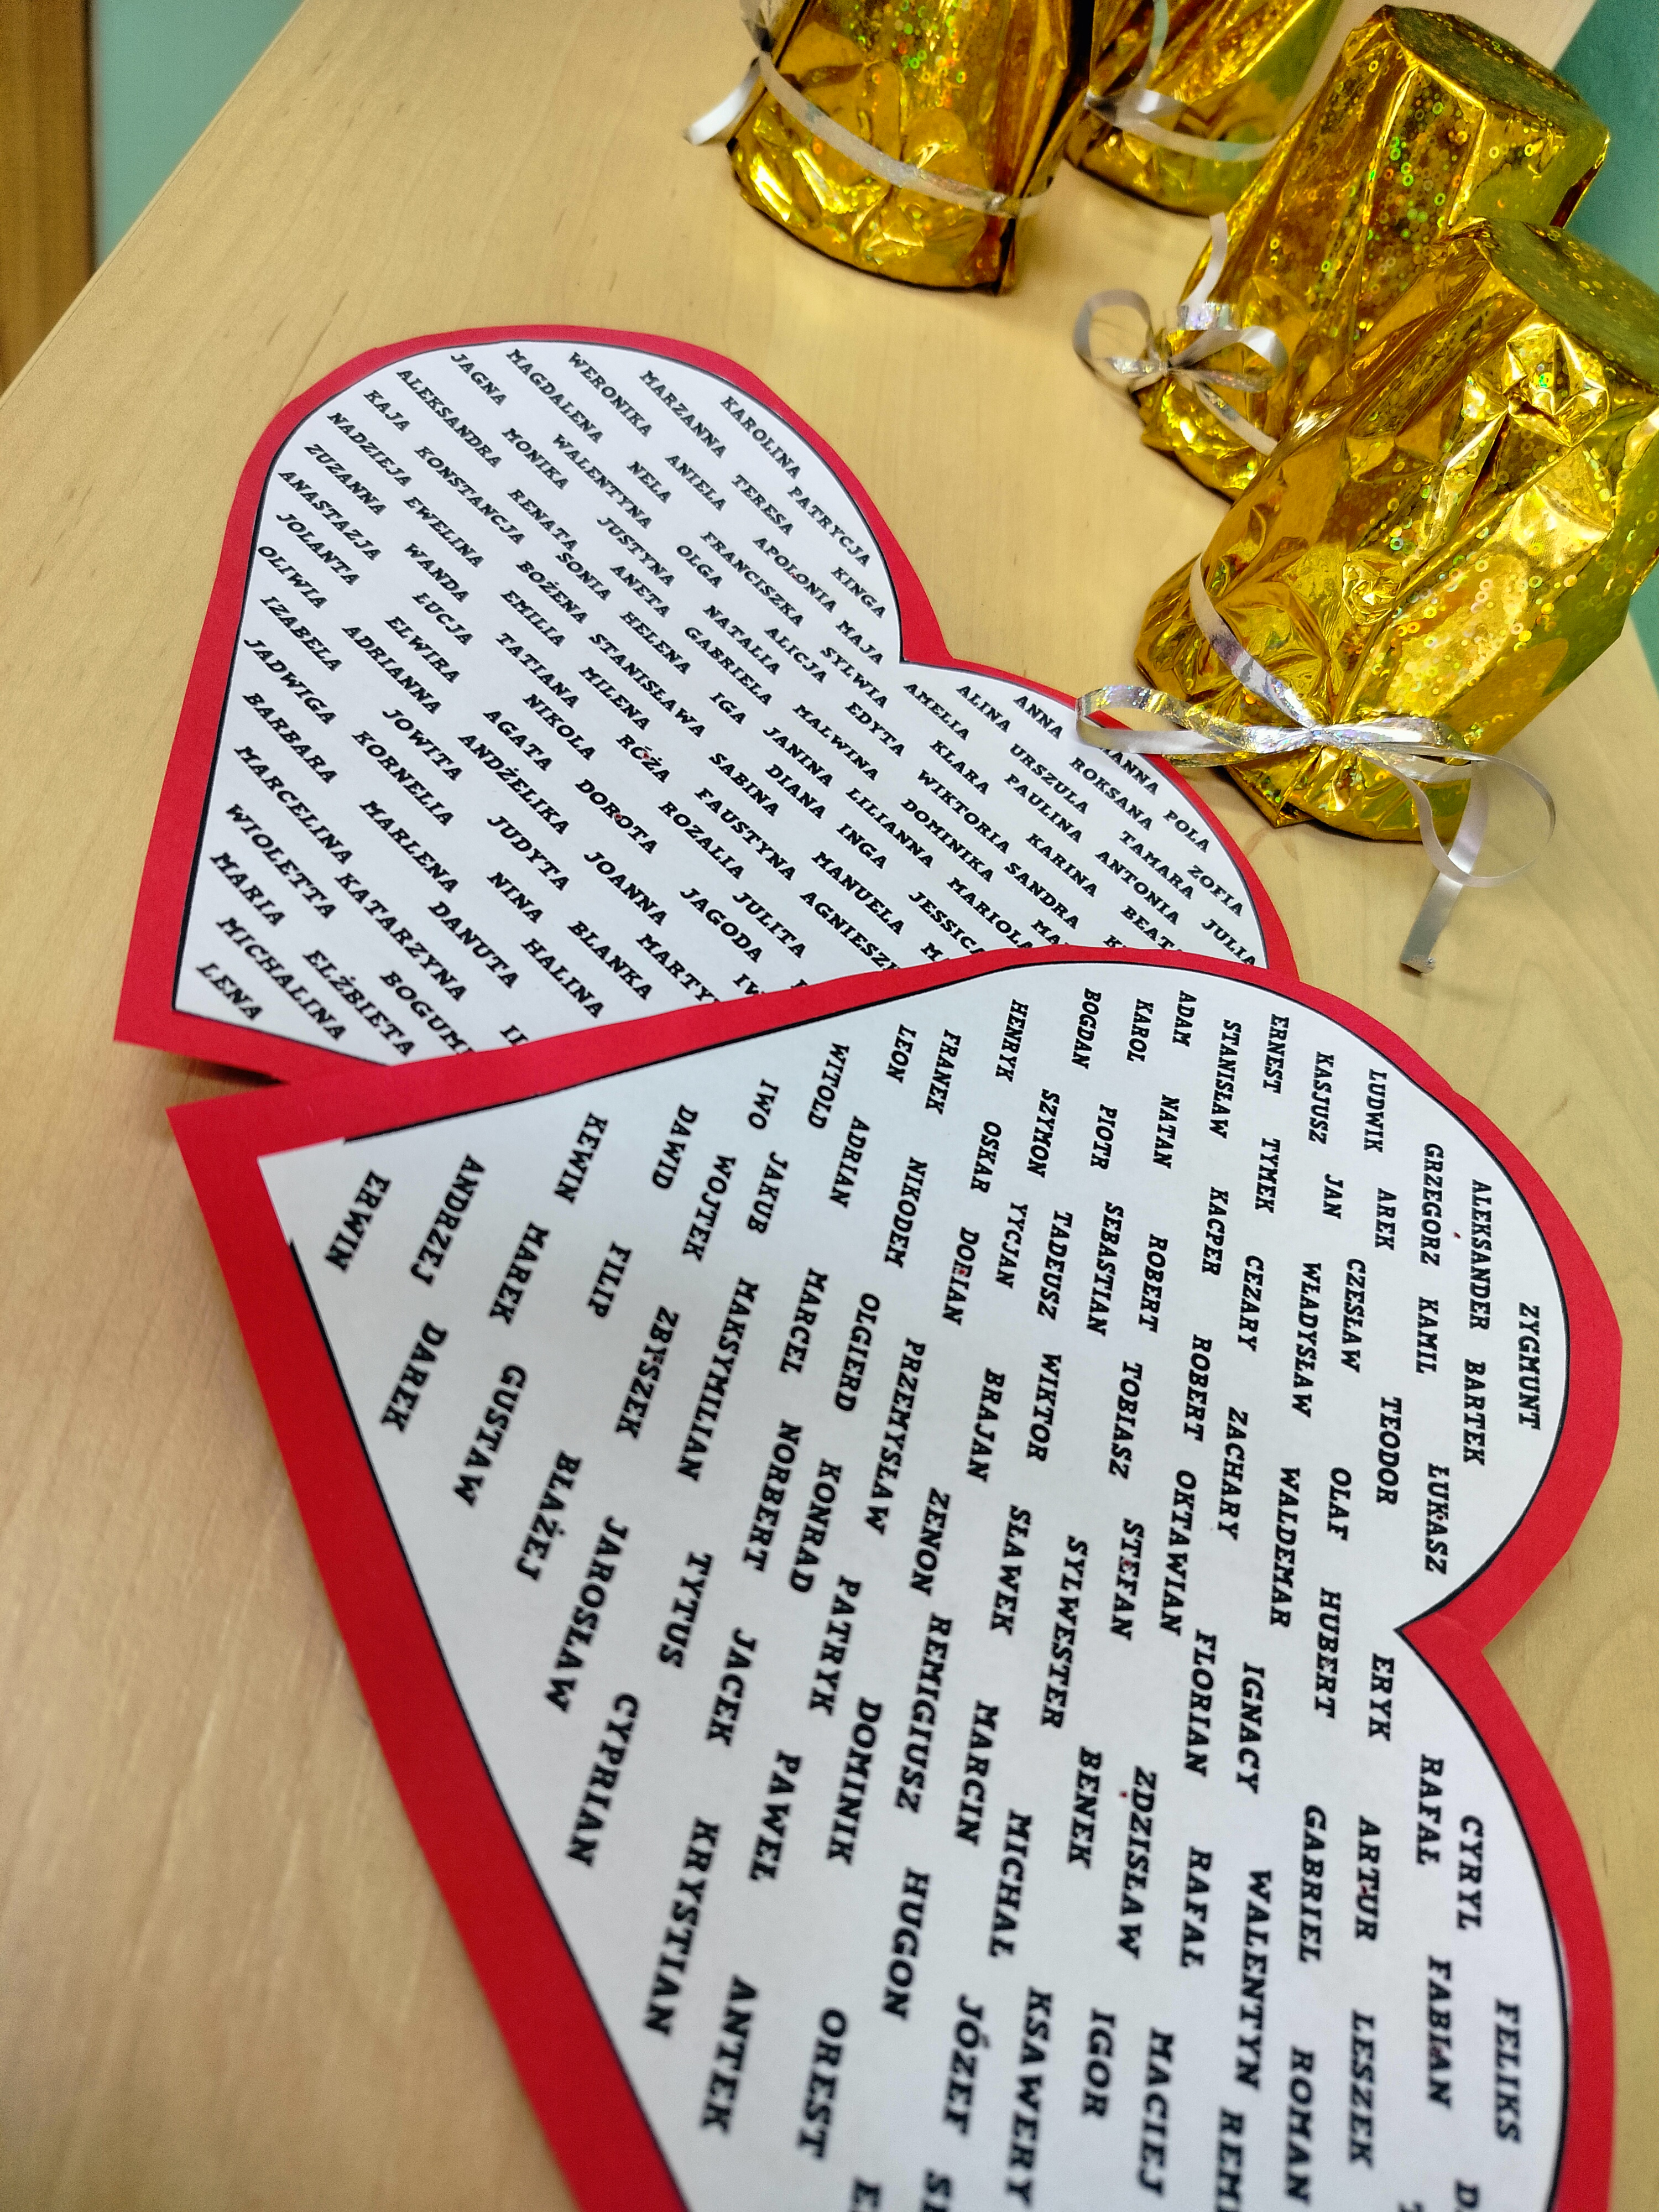 ANNA POLA
KAROLINA PATRYCJA ALINA ROKSANA ZOFIA
MARZANNA TERESA KINGA URSZULA TAMARA JULIA
WERONIKA ANIELA APOLONIA MAJA AMELIA PAULINA ANTONIA
MAGDALENA NELA FRANCISZKA SYLWIA KLARA KARINA
JAGNA WALENTYNA OLGA ALICJA EDYTA WIKTORIA SANDRA
MONIKA JUSTYNA NATALIA MALWINA DOMINIKA
ALEKSANDRA RENATA ANETA GABRIELA JANINA LILIANNA MARIOLA
KAJA KONSTANCJA SONIA HELENA IGA DIANA INGA JESSICA
NADZIEJA EWELINA BOŻENA STANISŁAWA SABINA MANUELA
ZUZANNA WANDA EMILIA MILENA FAUSTYNA
ANASTAZJA ŁUCJA TATIANA RÓŻA ROZALIA JULITA
JOLANTA ELWIRA NIKOLA DOROTA JAGODA
OLIWIA ADRIANNA AGATA JOANNA
IZABELA JOWITA ANDŻELIKA
JADWIGA KORNELIA JUDYTA BLANKA
BARBARA MARLENA NINA HALINA
MARCELINA KATARZYNA DANUTA
WIOLETTA
MARIA ELŻBIETA
MICHALINA
LENA
ZYGMUNT FELIKS
ALEKSANDER BARTEK CYRYL FABIAN
GRZEGORZ KAMIL ŁUKASZ RAFAŁ
LUDWIK AREK TEODOR ERYK ARTUR LESZEK
KASJUSZ JAN CZESŁAW OLAF HUBERT GABRIEL ROMAN
ERNEST TYMEK WŁADYSŁAW WALDEMAR IGNACY WALENTYN
STANISŁAW KACPER CEZARY ZACHARY FLORIAN RAFAŁ MACIEJ
ADAM NATAN ROBERT ROBERT OKTAWIAN ZDZISŁAW IGOR
KAROL PIOTR SEBASTIAN TOBIASZ STEFAN BENEK KSAWERY
BOGDAN SZYMON TADEUSZ WIKTOR SYLWESTER MICHAŁ JÓZEF
HENRYK OSKAR YYCJAN BRAJAN SŁAWEK MARCIN HUGON
FRANEK DORIAN ZENON REMIGIUSZ
LEON NIKODEM PRZEMYSŁAW DOMINIK OREST
WITOLD ADRIAN OLGIERD KONRAD PATRYK PAWEŁ ANTEK
IWO JAKUB MARCEL NORBERT JACEK KRYSTIAN
DAWID WOJTEK MAKSYMILIAN TYTUS
KEWIN FILIP ZBYSZEK JAROSŁAW CYPRIAN
ANDRZEJ MAREK GUSTAW BŁAŻEJ
ERWIN DAREK